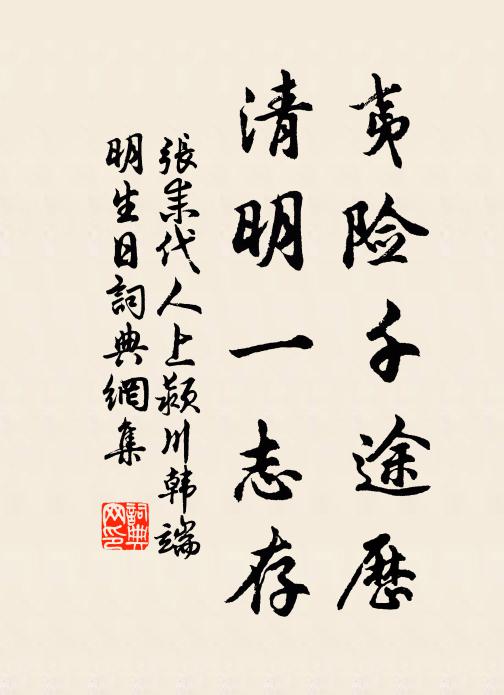 夷险千途歷
清明一志存
張耒代人上颍川韩端
明生日詞典網集
詞典
网印